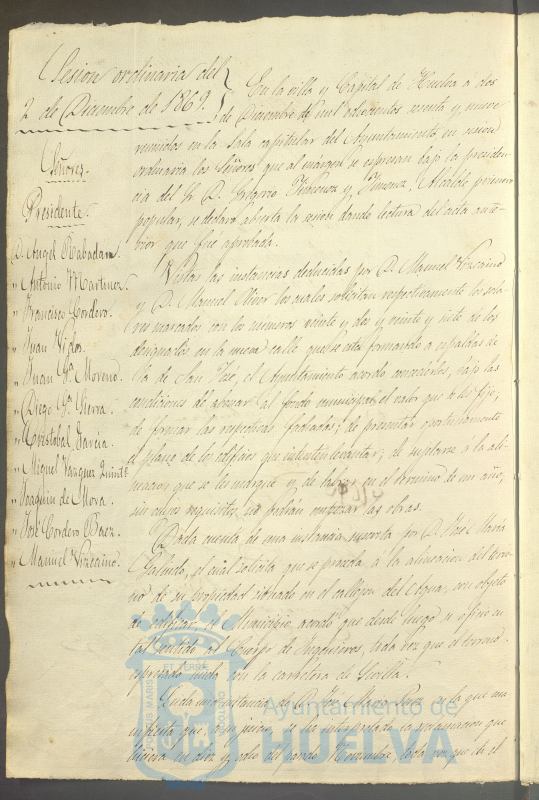 Sesion ordinaria del
2 de Diciembre de 1869.
Señores.
Presidente.
D. Angel Rabadan.
" Antonio Martinez.
" Francisco Cordero.
" Juan Vides.
" Juan Ga. Moreno.
" Diego Ga. Sierra.
" Cristobal Garcia.
" Miguel Vazquez
" Joaquin de Mora.
" José Cordero Baez.
" Manuel Vizcaino.
En la villa y Capital de Huelva a dos
de Diciembre de mil ochocientos sesenta y nueve
reunidos en la Sala capitular del Ayuntamiento en sesion
ordinaria los Señores que al margen se espresan bajo la presiden-
cia del Sr. D. Gregorio Jimenez y Jimenez, Alcalde primero
popular, se declaró abierta la sesion dando lectura del acta ante-
rior que fué aprobada.
Vistas las instancias deducidas por D. Manuel Vizcaino
y D. Manuel los cuales solicitan respectivamente los sola-
res marcados con los numeros veinte y dos y veinte y siete de los
designados en la nueva calle que se esta formando a espaldas de
la de San José, el Ayuntamiento acordó concederlos, bajo las
condiciones de abonar al fondo municipal el valor que se les fije;
de formar las respectivas fachadas; de presentar oportunamente
el plano de los edificios que intenten levantar; de sugetarse á la ali-
neacion que se les marque y de labrar en el termino de un año,
sin cuyos requisitos no podrán empezar las obras.
Dada cuenta de una instancia suscrita por D. José Maria
Galindo, el cual solicita que se proceda á la alineacion del terre-
no de su propiedad situado en el callejon del Agua, con objeto
de edificar, el Municipio acordó que desde luego se oficie en
tal sentido al Cuerpo de Ingenieros, toda vez que el terreno
espresado linda con la carretera de Sevilla.
Leida una instancia de D. José Maria Perez en la que ma-
nifiesta que, á su juicio, se ha interpretado la reclamacion que
hiciera en diez y ocho del pasado Noviembre, toda vez que en el
Ayuntamiento de
HUELVA